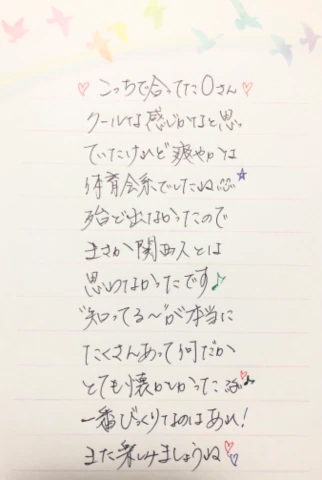 ♡こっちで合ってた〇さん♡
クールな感じかなと思っ
ていたけれど爽やかな
体育会系でしたね☆
殆ど出なかったので
まさか関西人とは
思わなかったです♪
"知ってる〜"が本当に
たくさんあって何だか
とても懐かしかった♪
一番びっくりなのはあれ!
また楽しみましょうね♡♡